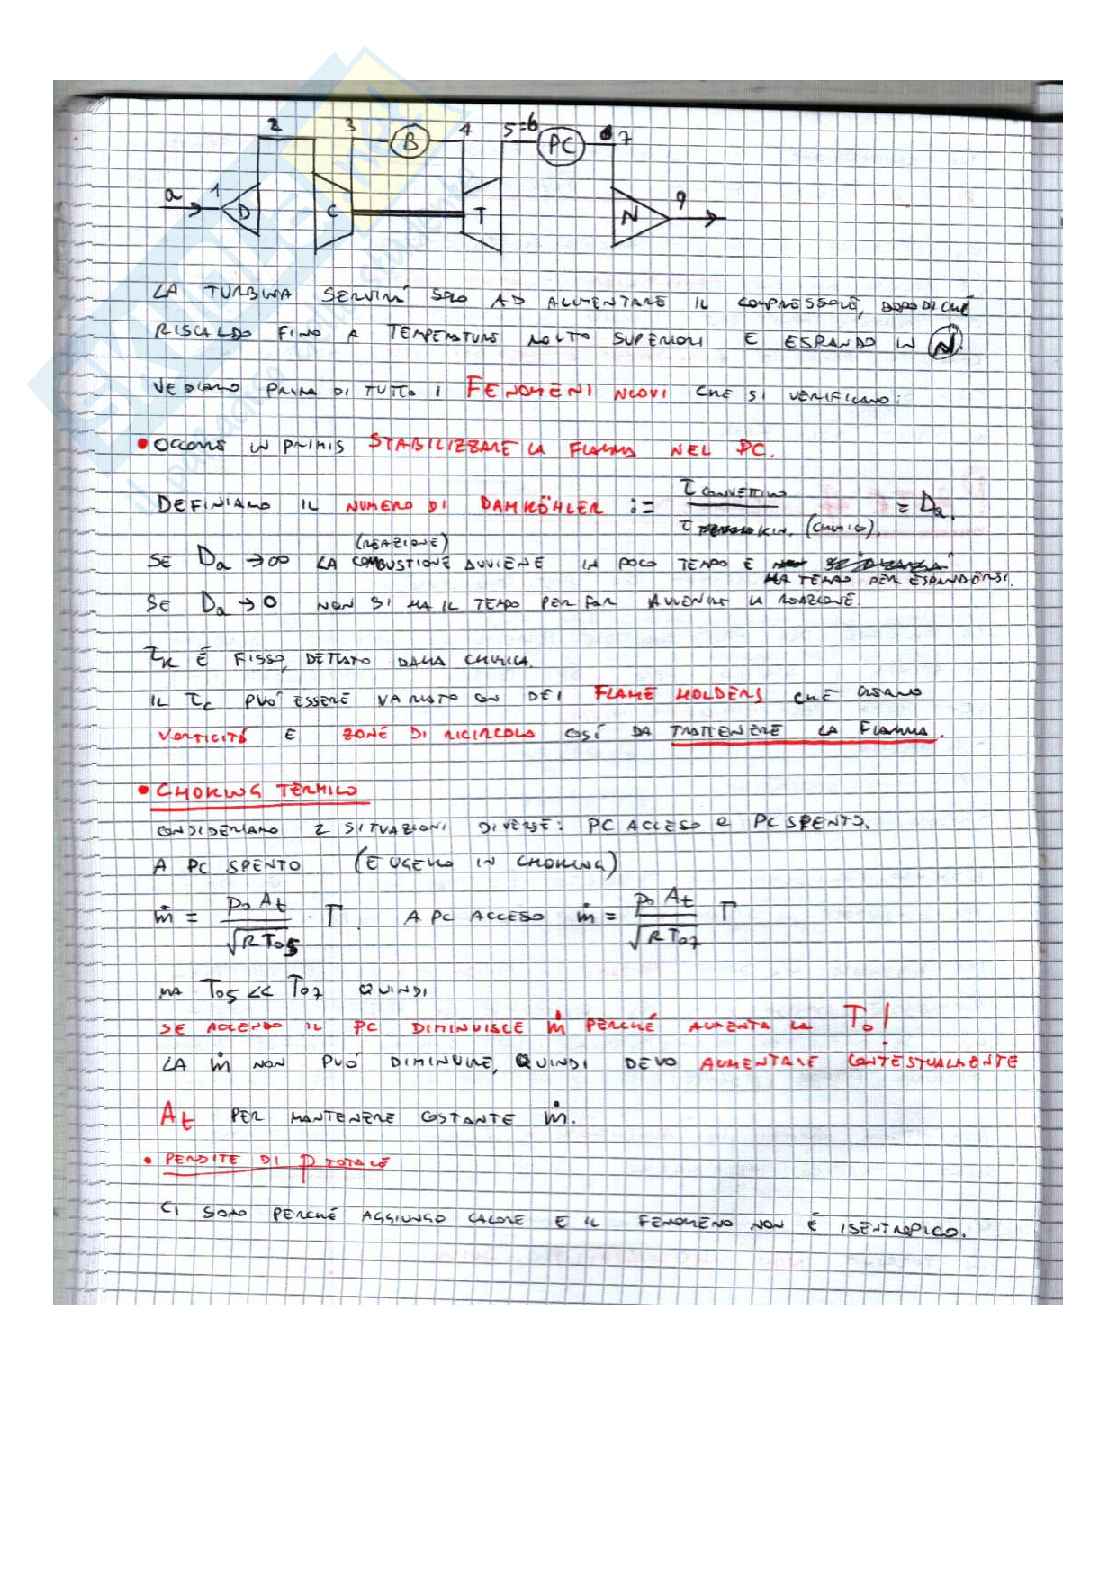 a 1 D 2 C 3 B 4 T 5=6 PC 7 N 9
LA TURBINA SERVIRÀ SOLO AD ALIMENTARE IL COMPRESSORE, DOPODICHÉ
RISCALDO FINO A TEMPERATURE MOLTO SUPERIORI E ESPANDO IN N.
VEDIAMO PRIMA DI TUTTO I FENOMENI NUOVI CHE SI VERIFICANO:
• OCCORRE IN PRIMIS STABILIZZARE LA FLAMMA NEL PC.
DEFINIAMO IL NUMERO DI DAMKÖHLER := τ CONVETTIVO / τ KIN. (CHIMICO). = Da.
(REAZIONE)
SE Da → ∞ LA COMBUSTIONE AVVIENE IN POCO TEMPO E
HA TEMPO PER ESPANDERSI.
SE Da → 0 NON SI HA IL TEMPO PER FAR AVVENIRE LA REAZIONE.
τK È FISSO, DETTATO DALLA CHIMICA.
IL τc PUÒ ESSERE VARIATO CON DEI FLAME HOLDERS CHE CREANO
VORTICITÀ E ZONE DI RICIRCOLO COSÌ DA TRATTENERE LA FIAMMA.
• CHOKING TERMICO
CONSIDERIAMO 2 SITUAZIONI DIVERSE: PC ACCESO e PC SPENTO.
A PC SPENTO (E UGELLO IN CHOKING)
ṁ = p₀ At / √R T05 · Γ. A PC ACCESO ṁ = p₀ At / √R T07 Γ
MA T05 << T07 QUINDI
SE ACCENDO IL PC DIMINUISCE ṁ PERCHÉ AUMENTA LA T₀!
LA ṁ NON PUÒ DIMINUIRE, QUINDI DEVO AUMENTARE CONTESTUALMENTE
At PER MANTENERE COSTANTE ṁ.
• PERDITE DI P TOTALE
CI SONO PERCHÉ AGGIUNGO CALORE E IL FENOMENO NON È ISENTROPICO.